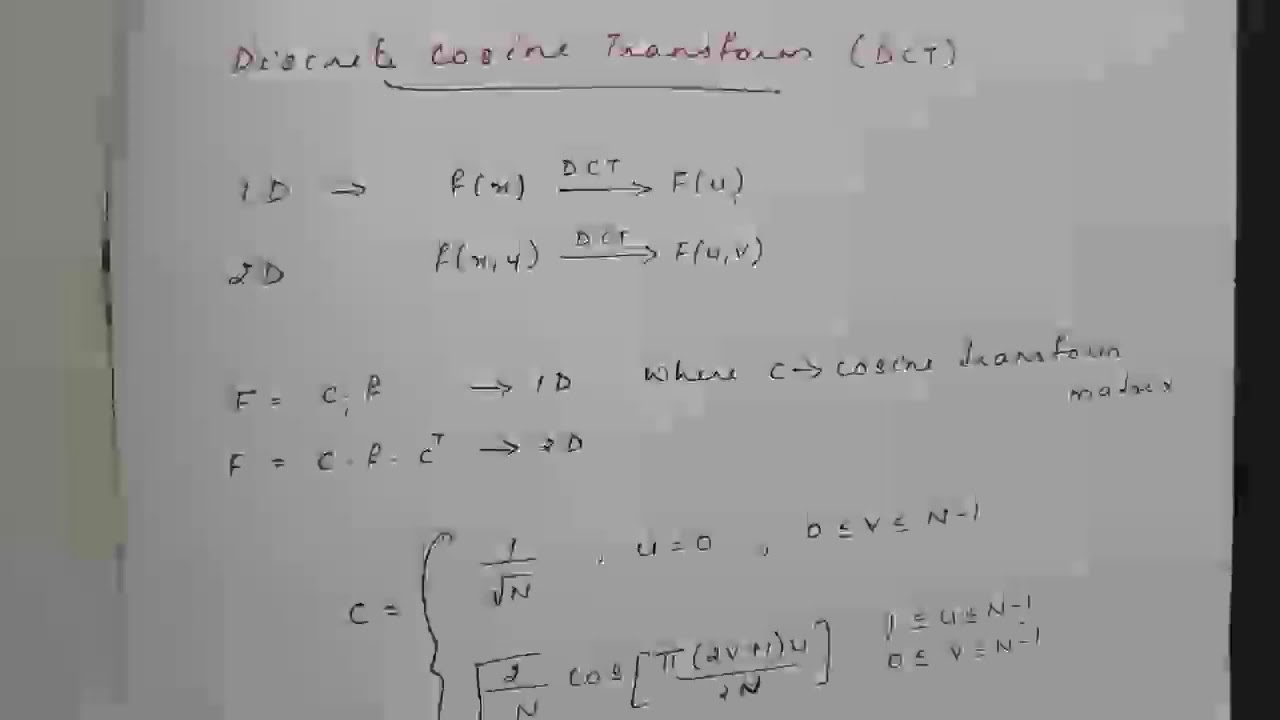 Discrete Cosine Transform (DCT)
1D → f(x) DCT → F(u)
2D f(x,y) DCT → F(u,v)
F = C.f → 1D where C → cosine transform
matrix
F = C.f.Cᵀ → 2D
C = { 1/√N , u = 0 , 0 ≤ v ≤ N-1
√2/N cos[π(2v+1)u/2N] 1 ≤ u ≤ N-1
0 ≤ v ≤ N-1